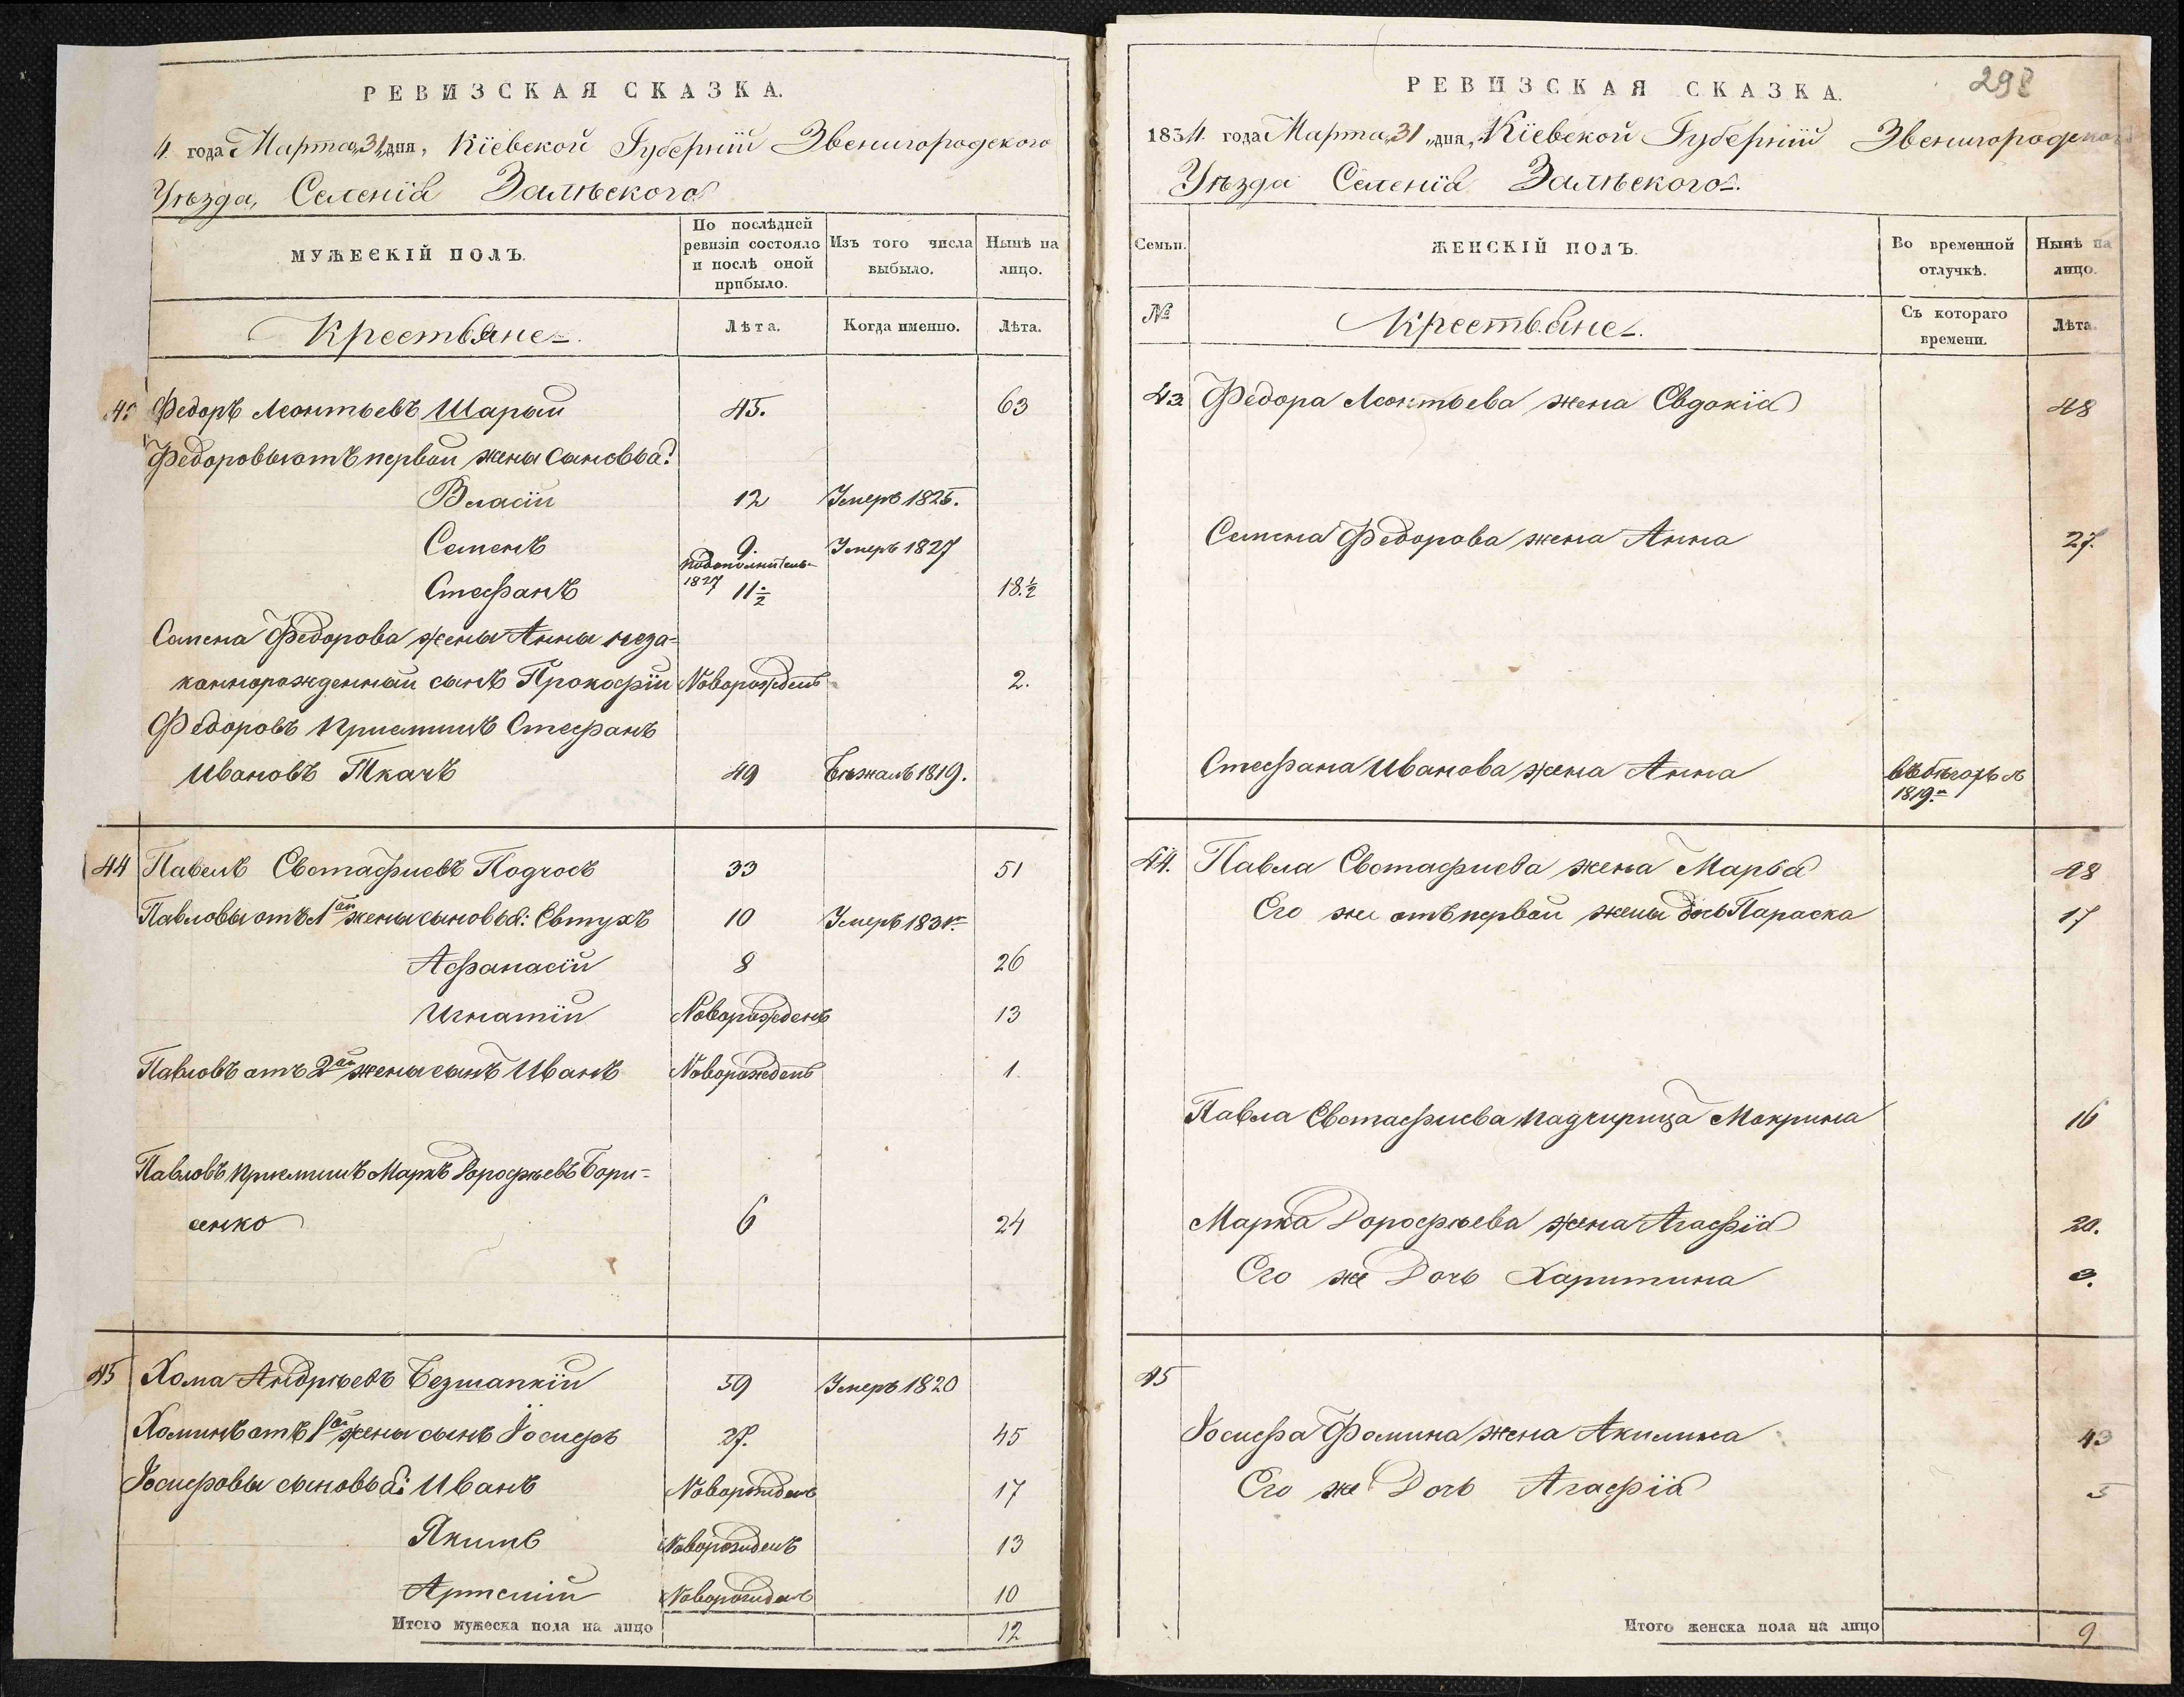 РЕВИЗСКАЯ СКАЗКА.
4 года Марта „31„ дня, Кіевской Губерніи Звенигородского
Уѣзда, Селенія Залѣского
МУЖЕСКІЙ ПОЛЪ.
По послѣдней ревизіи состояло и послѣ оной прибыло.
Изъ того числа выбыло.
Нынѣ на лицо.
Крестьяне
Лѣта.
Когда именно.
Лѣта.
43 Федоръ Леонтьевъ Шарый 45. 63
Федоровы отъ первой жены сыновья:
Власій 12 Умеръ 1825.
Семенъ 9. Умеръ 1827
Стефанъ 1827 11½ 18.½
Семена Федорова жены Анны неза=
коннорожденный сынъ Прокофій Новорожденъ 2.
Федоровъ приемышъ Стефанъ
Ивановъ Ткачъ 49 Бѣжалъ 1819.
44 Павелъ Евстафиевъ Подчосъ 33 51
Павловы отъ 1ой жены сыновья: Евтухъ 10 Умеръ 1831
Афанасій 8 26
Игнатій Новорожденъ 13
Павловъ отъ 2ой жены сынъ Иванъ Новорожденъ 1.
Павловъ приемышъ Марко Дорофѣевъ Бори=
сенко 6 24
45 Хома Андрѣевъ Безшапкій 59 Умеръ 1820
Хоминъ отъ 1ой жены сынъ Іосифъ 27. 45
Іосифовы сыновья: Иванъ Новорожденъ 17
Якимъ Новорожденъ 13
Артемій Новорожденъ 10
Итого мужеска пола на лицо 12
298
РЕВИЗСКАЯ СКАЗКА.
1834 года Марта „31„ дня, Кіевской Губерніи Звенигородского
Уѣзда Селенія Залѣского.
Семьи.
ЖЕНСКІЙ ПОЛЪ.
Во временной отлучкѣ.
Нынѣ на лицо.
№
Крестьяне
Съ котораго времени.
Лѣта.
43 Федора Леонтьева жена Евдокія 48
Семена Федорова жена Анна 27.
Стефана Иванова жена Анна въ бѣгахъ съ
1819.
44. Павла Евстафиева жена Марья 48
Его же отъ первой жены дочь Параска 17
Павла Евстафиева падчирица Мокрина 16
Марка Дорофѣева жена Агафія 20.
Его же Дочь Харитина 3.
45
Іосифа Фомина жена Акилина 43
Его же Дочь Агафія 5
Итого женска пола на лицо 9